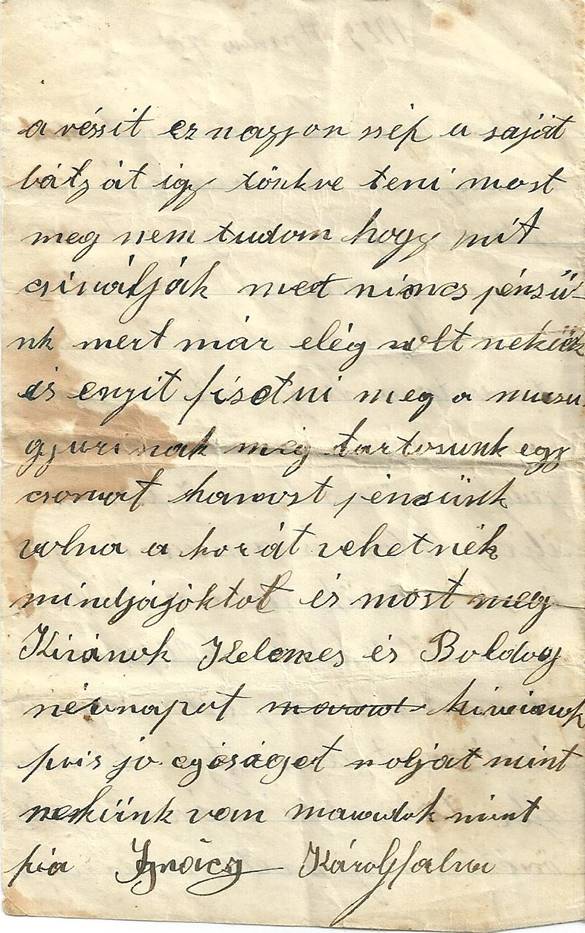 a réssit ez nagyon szép a saját
bátyát így tönkve teni most
meg nem tudom hogy mit
csinálják met nincs pénzü-
nk mert már elég volt nekünk
is enyit fisetni meg a
gyurinak még tartosunk egy
csomot hamost pénzünk
volna a korát vehetnék
mindjájoktol és most meg
Kivánok Kelemes és Boldog
névnapot kiviánok
jo egéséget mint
nekünk van maradok mint
fia Ignácz Károlyfalva